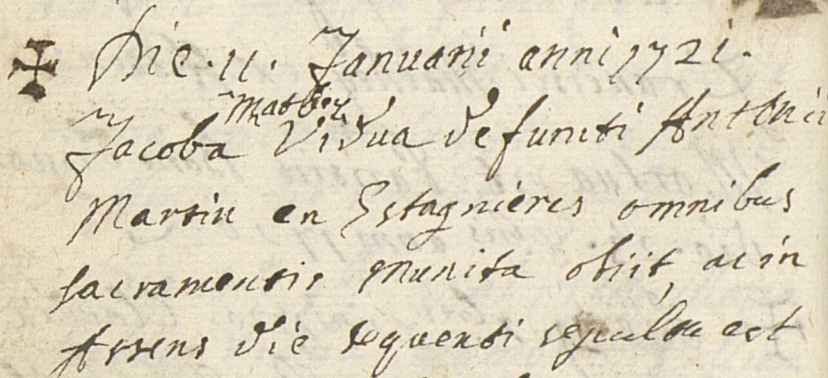 Die . 11 . Januarii anni 1721 .
Jacoba Vidua defuncti Antonii
Martin en Estagnieres omnibus
sacramentis munita obiit, ac in
Assens die sequenti sepulta est